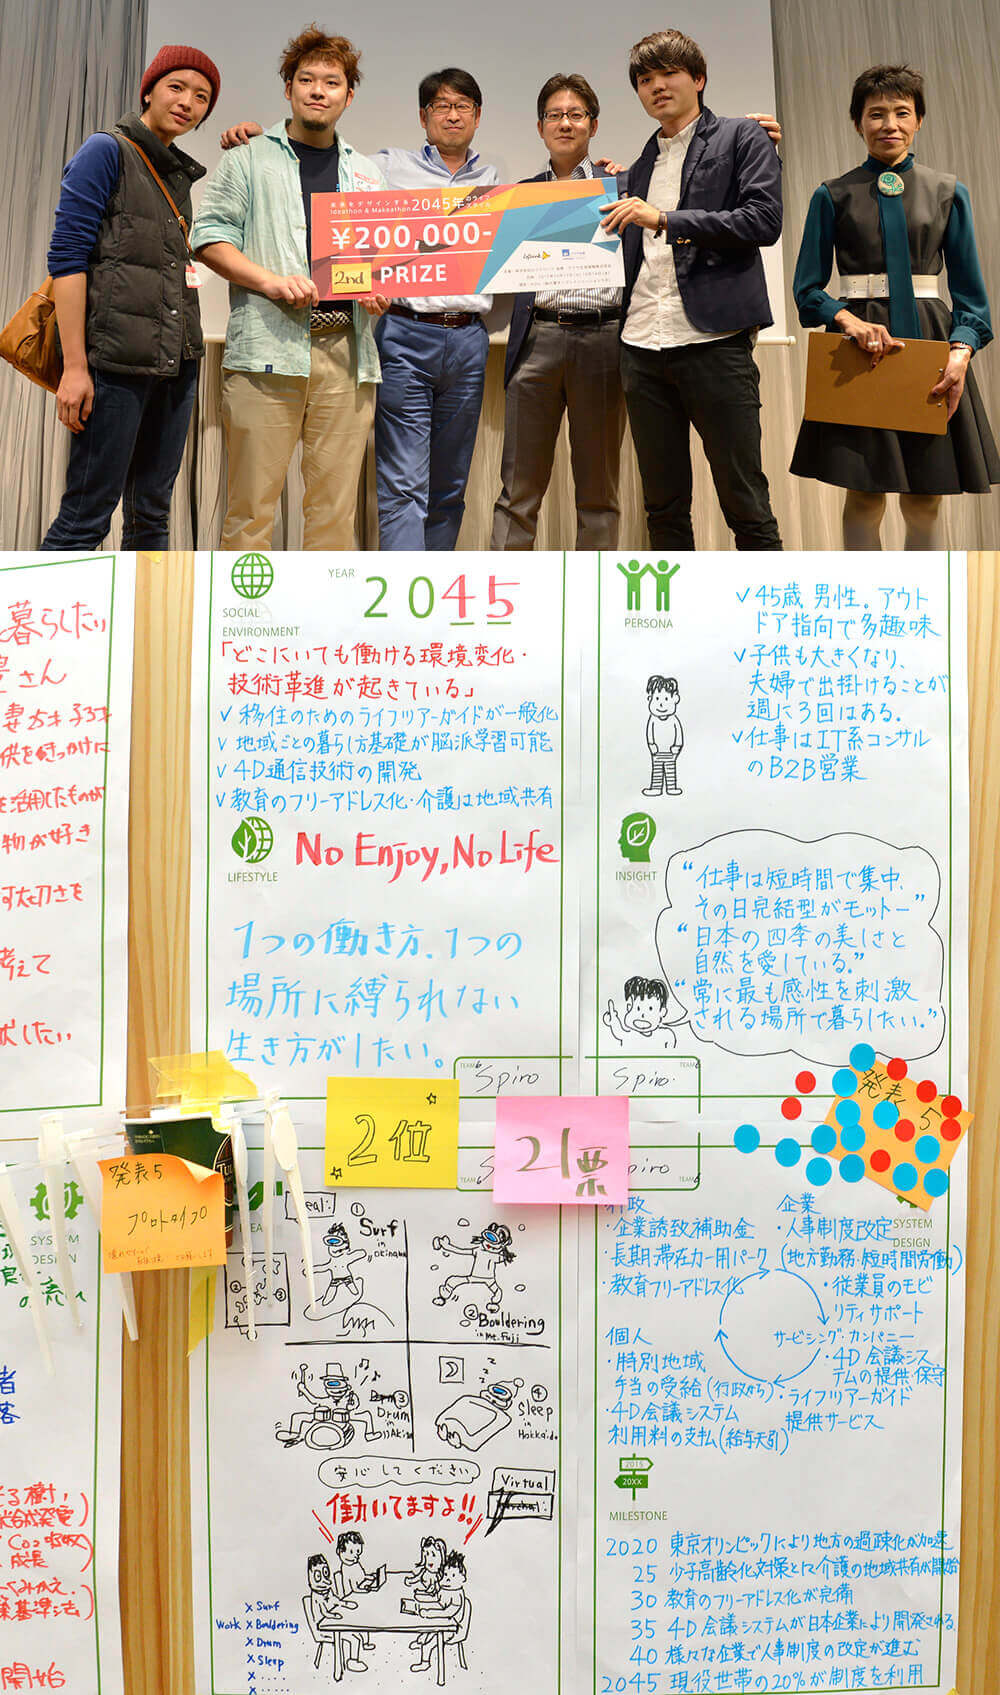 未来をデザインする
Ideathon & Makeathon 2045年のライフスタイル
¥200,000-
2nd PRIZE
暮らしたい
さん
供をきっかけに
を活用したものが
物が好き
考えて
したい
SOCIAL
ENVIRONMENT
YEAR
2045
「どこにいても働ける環境変化・
技術革進が起きている」
✓ 移住のためのライフリアーガイドが一般化
✓ 地域ごとの暮らし方基礎が脳派学習可能
✓ 4D通信技術の開発
✓ 教育のフリーアドレス化・介護は地域共有
LIFESTYLE
No Enjoy, No Life
1つの働き方、1つの
場所に縛られない
生き方がしたい。
TEAM
Spiro
PERSONA
✓ 45歳 男性。アウト
ドア指向で多趣味
✓ 子供も大きくなり、
夫婦で出掛けることが
週に3回はある.
✓ 仕事はIT系コンサル
のB2B営業
INSIGHT
"仕事は短時間で集中、
その日完結型がモットー"
"日本の四季の美しさと
自然を愛している."
"常に最も感性を刺激
される場所で暮らしたい."
TEAM
Spiro.
発表5
2位
21票
発表5
プロトタイプ
SYSTEM
DESIGN
の流れ
Real:
①
Surf
in
Okinawa
②
Bouldering
in Mt. Fuji
③
Drum
in
Akiba
④
Sleep
in
Hokkaido
安心してください
働いてますよ!!
Virtual
Work
× Surf
× Bouldering
× Drum
× Sleep
× .....
× .....
SYSTEM
DESIGN
行政
・企業誘致補助金
・長期滞在カー用パーク
・教育フリーアドレス化
企業
・人事制度改定
(地方勤務・短時間労働)
・従業員のモビ
リティサポート
個人
・特別地域
手当の受給(行政から)
・4D会議システム
利用料の支払(給与天引)
サービシング・カンパニー
・4D会議シス
テムの提供・保守
・ライフリアーガイド
提供サービス
2015
20XX
MILESTONE
2020 東京オリンピックにより地方の過疎化が加速
25 少子高齢化対策として介護の地域共有が開始
30 教育のフリーアドレス化が完備
35 4D会議システムが日本企業により開発される.
40 様々な企業で人事制度の改定が進む
2045 現役世帯の20%が制度を利用
樹,
CO₂吸収
成長
基準法)
開始